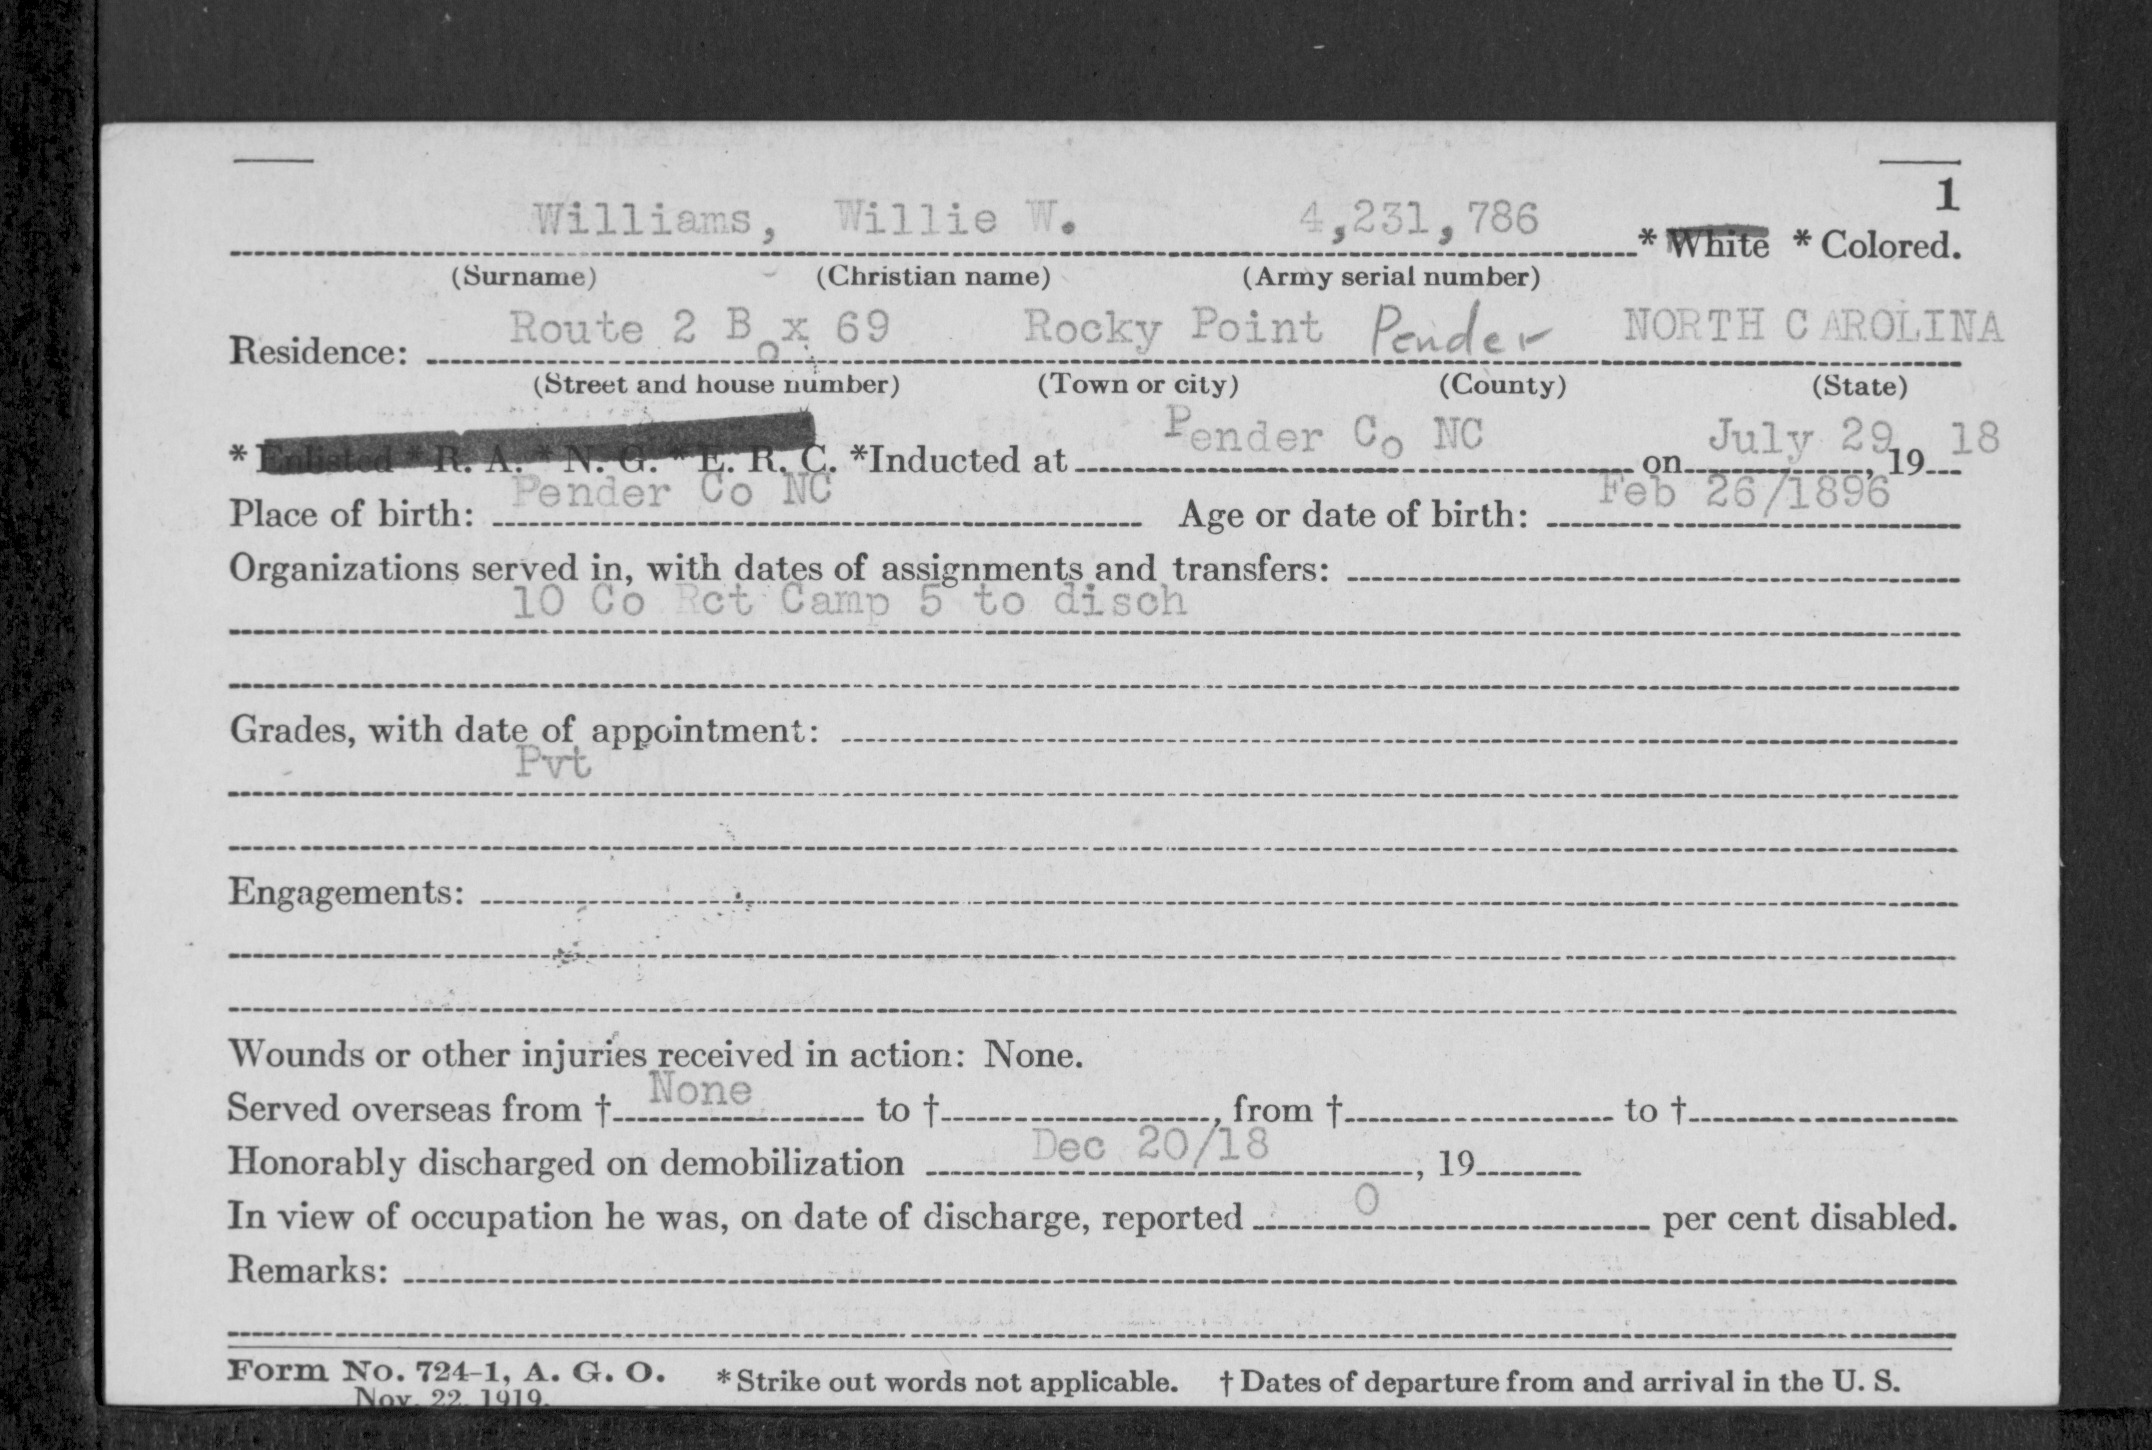 1
Williams, Willie W. 4,231,786 * White * Colored.
(Surname) (Christian name) (Army serial number)
Residence: Route 2 Box 69 Rocky Point Pender NORTH CAROLINA
(Street and house number) (Town or city) (County) (State)
* Enlisted * R. A. * N. G. * E. R. C. *Inducted at Pender Co NC on July 29, 19 18
Place of birth: Pender Co NC Age or date of birth: Feb 26/1896
Organizations served in, with dates of assignments and transfers:
10 Co Rct Camp 5 to disch
Grades, with date of appointment:
Pvt
Engagements:
Wounds or other injuries received in action: None.
Served overseas from † None to †, from † to †
Honorably discharged on demobilization Dec 20/18, 19
In view of occupation he was, on date of discharge, reported 0 per cent disabled.
Remarks:
Form No. 724-1, A. G. O. * Strike out words not applicable. † Dates of departure from and arrival in the U. S.
Nov. 22, 1919.